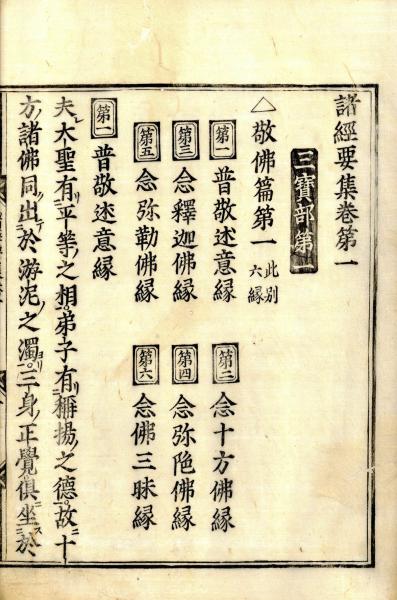 諸經要集卷第一
三寶部第一
△敬佛篇第一 此別六縁
第一 普敬述意縁 第二 念十方佛縁
第三 念釋迦佛縁 第四 念弥陁佛縁
第五 念弥勒佛縁 第六 念佛三昧縁
第一 普敬述意縁
夫大聖有平等之相弟子有稱揚之德故十
方諸佛同出於游泥之濁三身正覺俱坐於